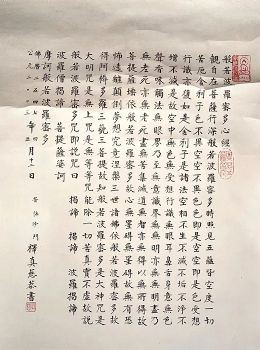 般若波羅蜜多心經
觀自在菩薩行深般若波羅蜜多時照見五蘊皆空度一切
苦厄舍利子色不異空空不異色色即是空空即是色受想
行識亦復如是舍利子是諸法空相不生不滅不垢不淨不
增不減是故空中無色無受想行識無眼耳鼻舌身意無色
聲香味觸法無眼界乃至無意識界無無明亦無無明盡乃至
無老死亦無老死盡無苦集滅道無智亦無得以無所得故
菩提薩埵依般若波羅蜜多故心無罣礙無罣礙故無有恐
怖遠離顛倒夢想究竟涅槃三世諸佛依般若波羅蜜多故
得阿耨多羅三藐三菩提故知般若波羅蜜多是大神咒是
大明咒是無上咒是無等等咒能除一切苦真實不虛故說
般若波羅蜜多咒即說咒曰 揭諦 揭諦 波羅揭諦
波羅僧揭諦 菩提薩婆訶
摩訶般若波羅蜜多
佛曆二五四七
年 月十一日
沙門 釋真慈恭書